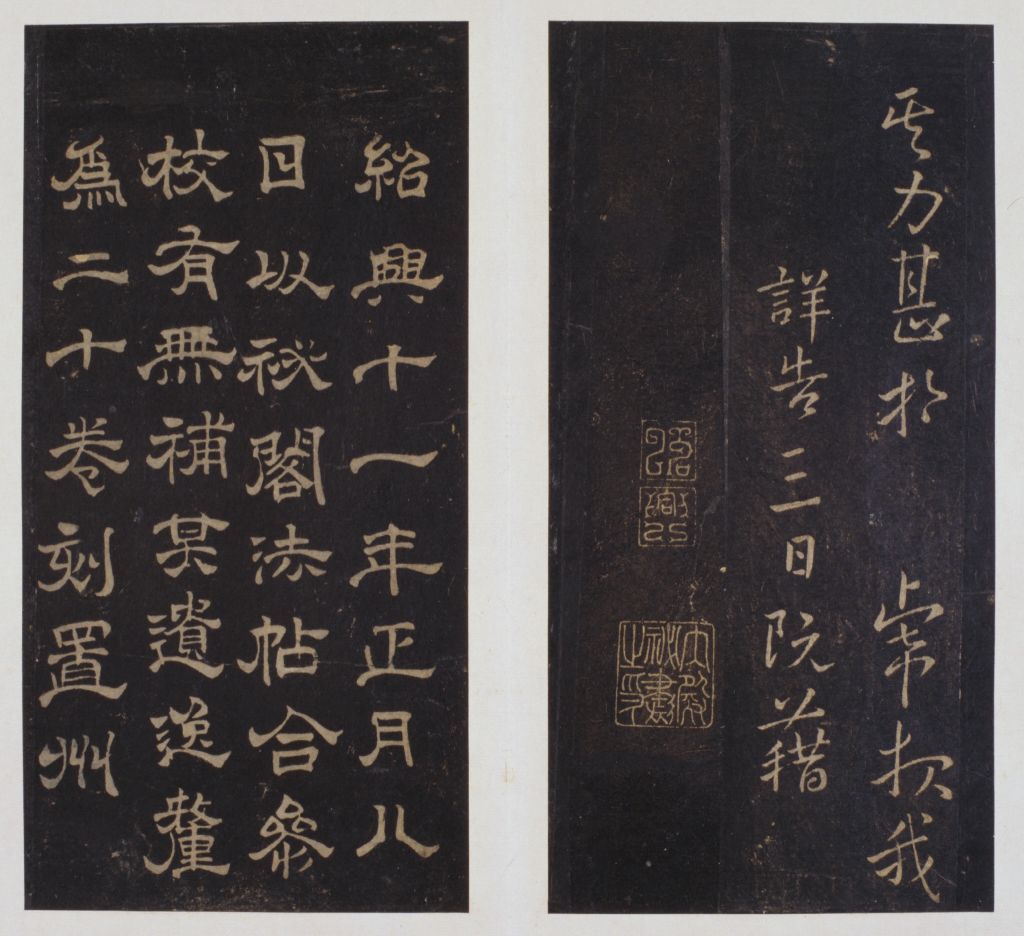 力甚於常我
詳告三日阮籍
紹
興
紹興十一年正月八
日以祕閣法帖合參
校有無補其遺逸釐
爲二十卷刻置州